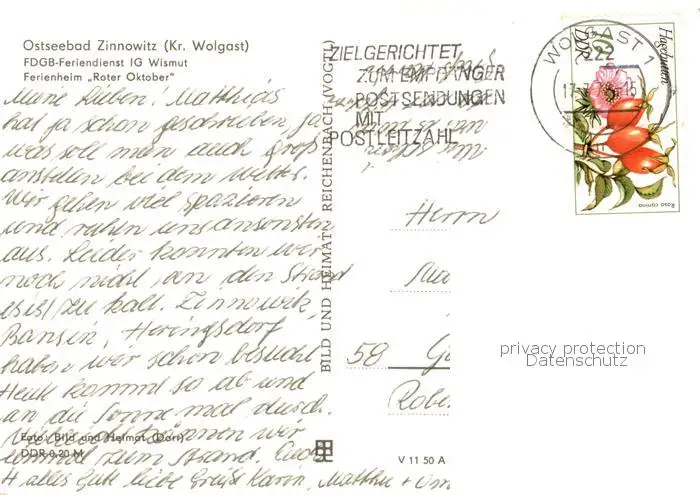 Ostseebad Zinnowitz (Kr. Wolgast)
FDGB-Feriendienst IG Wismut
Ferienheim „Roter Oktober"
Meine Lieben! Matthias
hat ja schon geschrieben ja
was soll man auch groß
anstellen bei dem Wetter.
Wir gehen viel spazieren
und ruhen uns ansonsten
aus. Leider konnten wir
noch nicht an den Strand
es ist zu kalt. Zinnowitz,
Bansin, Heringsdorf
haben wir schon besucht
Heute kommt so ab und
an die Sonne mal durch.
Vielleicht können wir
einmal zum Strand. Euch
+ alles Gute liebe Grüße Karin, Matthias + Om
Foto: Bild und Heimat (Dorr)
DDR 0,20 M
BILD UND HEIMAT REICHENBACH (VOGTL)
V 11 50 A
ZIELGERICHTET
ZUM EMPFÄNGER
POSTSENDUNGEN
MIT
POSTLEITZAHL
WOLGAST 1
222
Hagebutten
DDR
Rosa canina
Herrn
58
Robe
privacy protection
Datenschutz